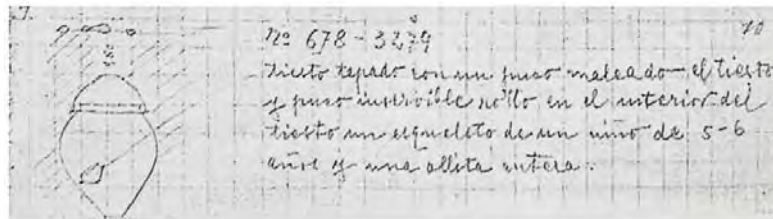 Nº 678 - 3279
tiesto tapado con un puco maleado el tiesto
y puco inservible sólo en el interior del
tiesto un esqueleto de un niño de 5-6
años y una ollita entera.